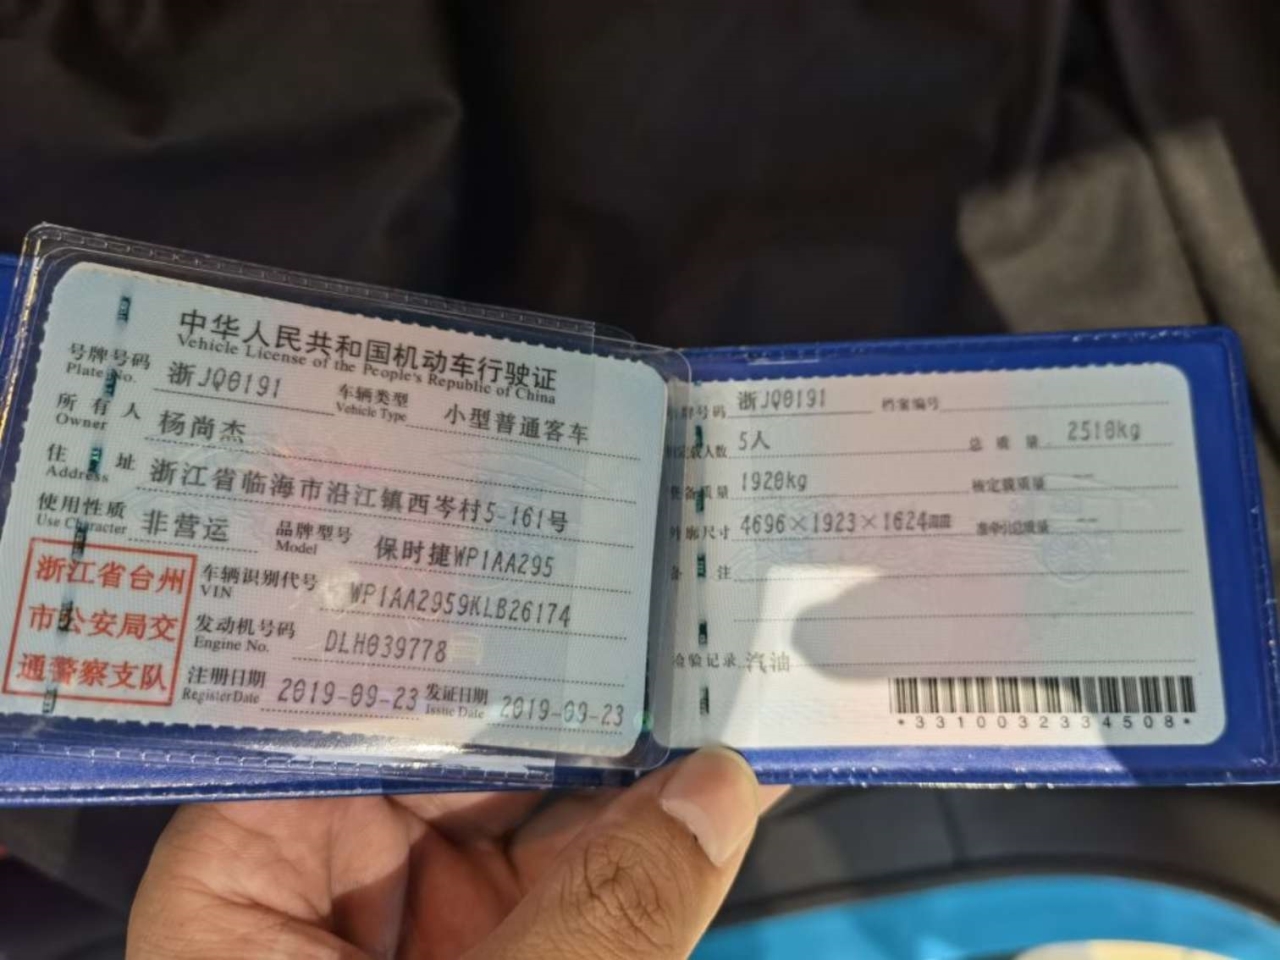 中华人民共和国机动车行驶证
Vehicle License of the People's Republic of China
号牌号码 浙JQ0191 车辆类型 小型普通客车
Plate No. Vehicle Type
所有人 杨尚杰
Owner
住址 浙江省临海市沿江镇西岑村5-161号
Address
使用性质 非营运 品牌型号 保时捷WP1AA295
Use Character Model
浙江省台州
市公安局交
通警察支队
车辆识别代号 WP1AA2959KLB26174
VIN
发动机号码 DLH039778
Engine No.
注册日期 2019-09-23 发证日期 2019-09-23
Register Date Issue Date
号牌号码 浙JQ0191 档案编号
载人数 5人 总质量 2510kg
备质量 1920kg 核定载质量 --
外廓尺寸 4696×1923×1624mm 准牵引总质量 --
备注
检验记录 汽油
*3310032334508*